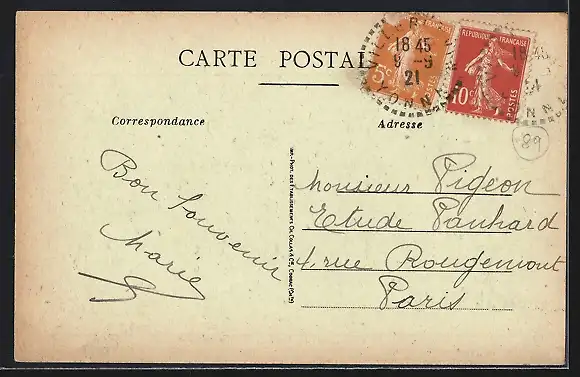 CARTE POSTALE
VILLE
18 45
9 -9
21
YONNE
5c
RÉPUBLIQUE FRANÇAISE
10c
POSTES
89
Correspondance
Adresse
Bon Souvenir
Marie
Monsieur Pigeon
Etude Panhard
4, rue Rougemont
Paris